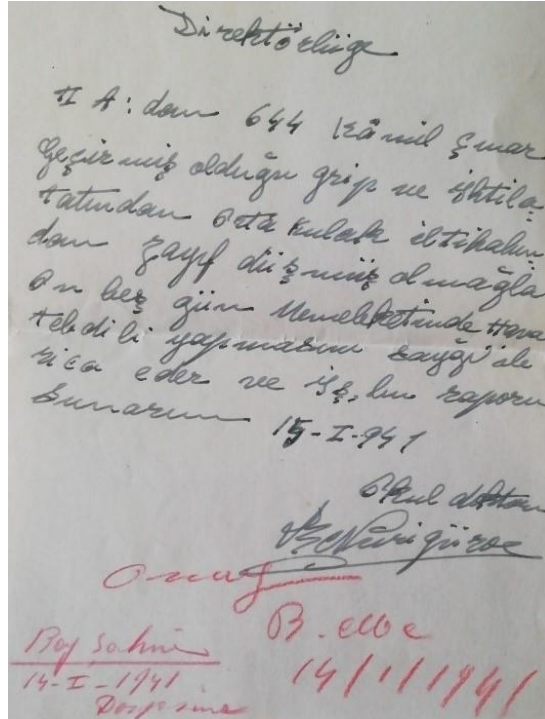 Direktörlüğe
II A: dan 644 Kâmil Çınar
Geçirmiş olduğu grip ve ihtila-
tatından Orta Kulak iltihabın
dan zayıf düşmüş olmağla
On beş gün Memleketinde Hava
tebdili yapmasını saygı ile
rica eder ve iş,bu raporu
Sunarım 15-I-941
Okul doktoru
Onay
14/1/1941
14-I-1941